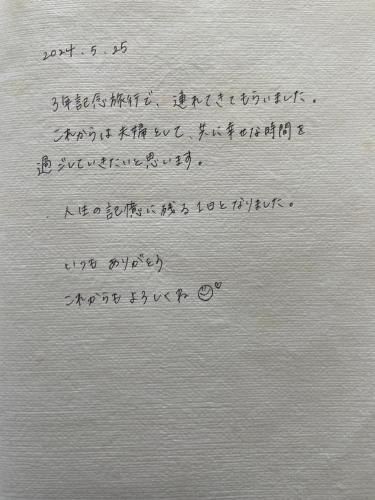 2024.5.25
3年記念旅行で、連れてきてもらいました。
これからは夫婦として、共に幸せな時間を
過ごしていきたいと思います。
人生の記憶に残る1日となりました。
いつもありがとう
これからもよろしくね